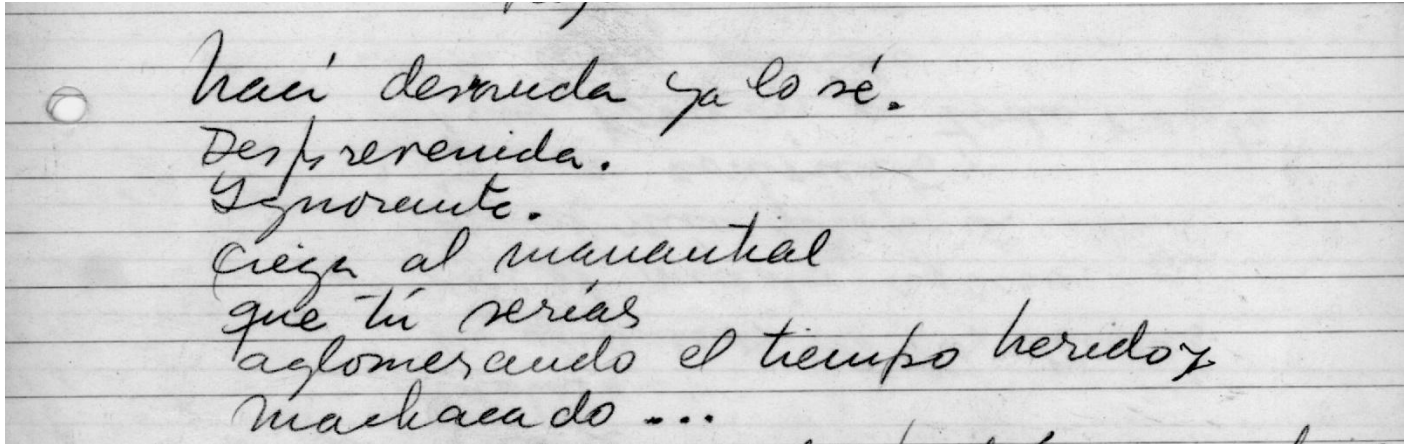 nací desnuda ya lo sé.
Desprevenida.
Ignorante.
Ciega al manantial
que tú serías
aglomerando el tiempo herido y
machacado...